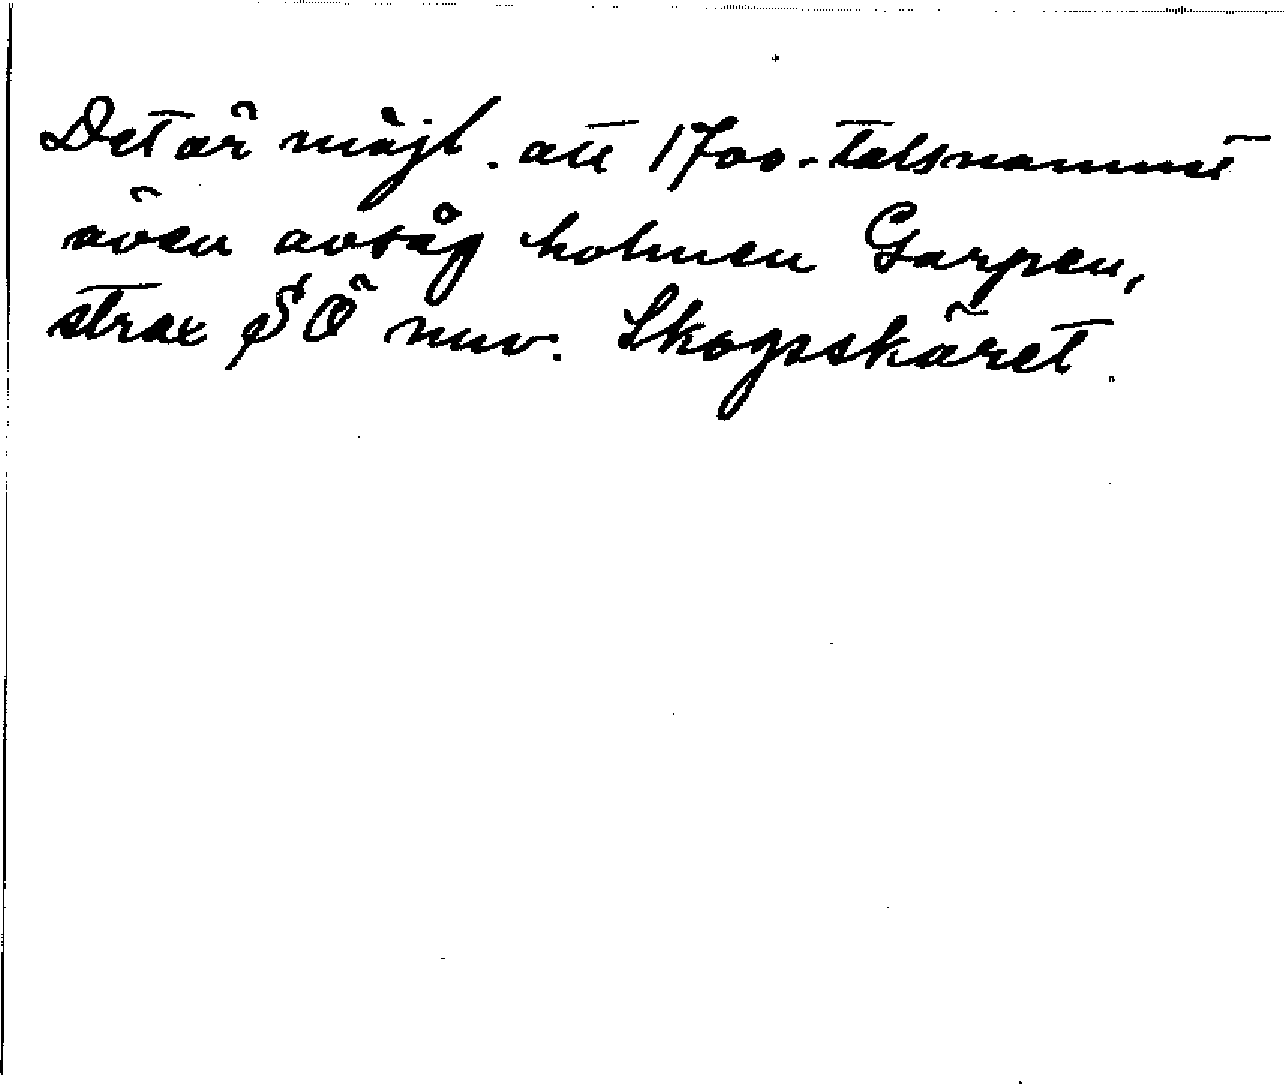 Det är möjl. att 1700-talsnamnet
även avsåg holmen Garpen,
strax SÖ nuv. Skogsskäret.